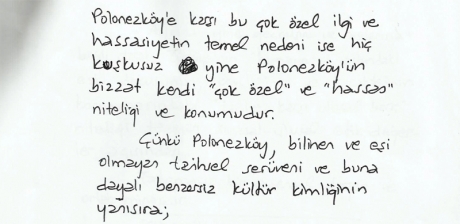 Polonezköy'e karşı bu çok özel ilgi ve
hassasiyetin temel nedeni ise hiç
kuşkusuz yine Polonezköy'ün
bizzat kendi "çok özel" ve "hassas"
niteliği ve konumudur.
Çünkü Polonezköy, bilinen ve eşi
olmayan tarihsel serüveni ve buna
dayalı benzersiz kültür kimliğinin
yanısıra;